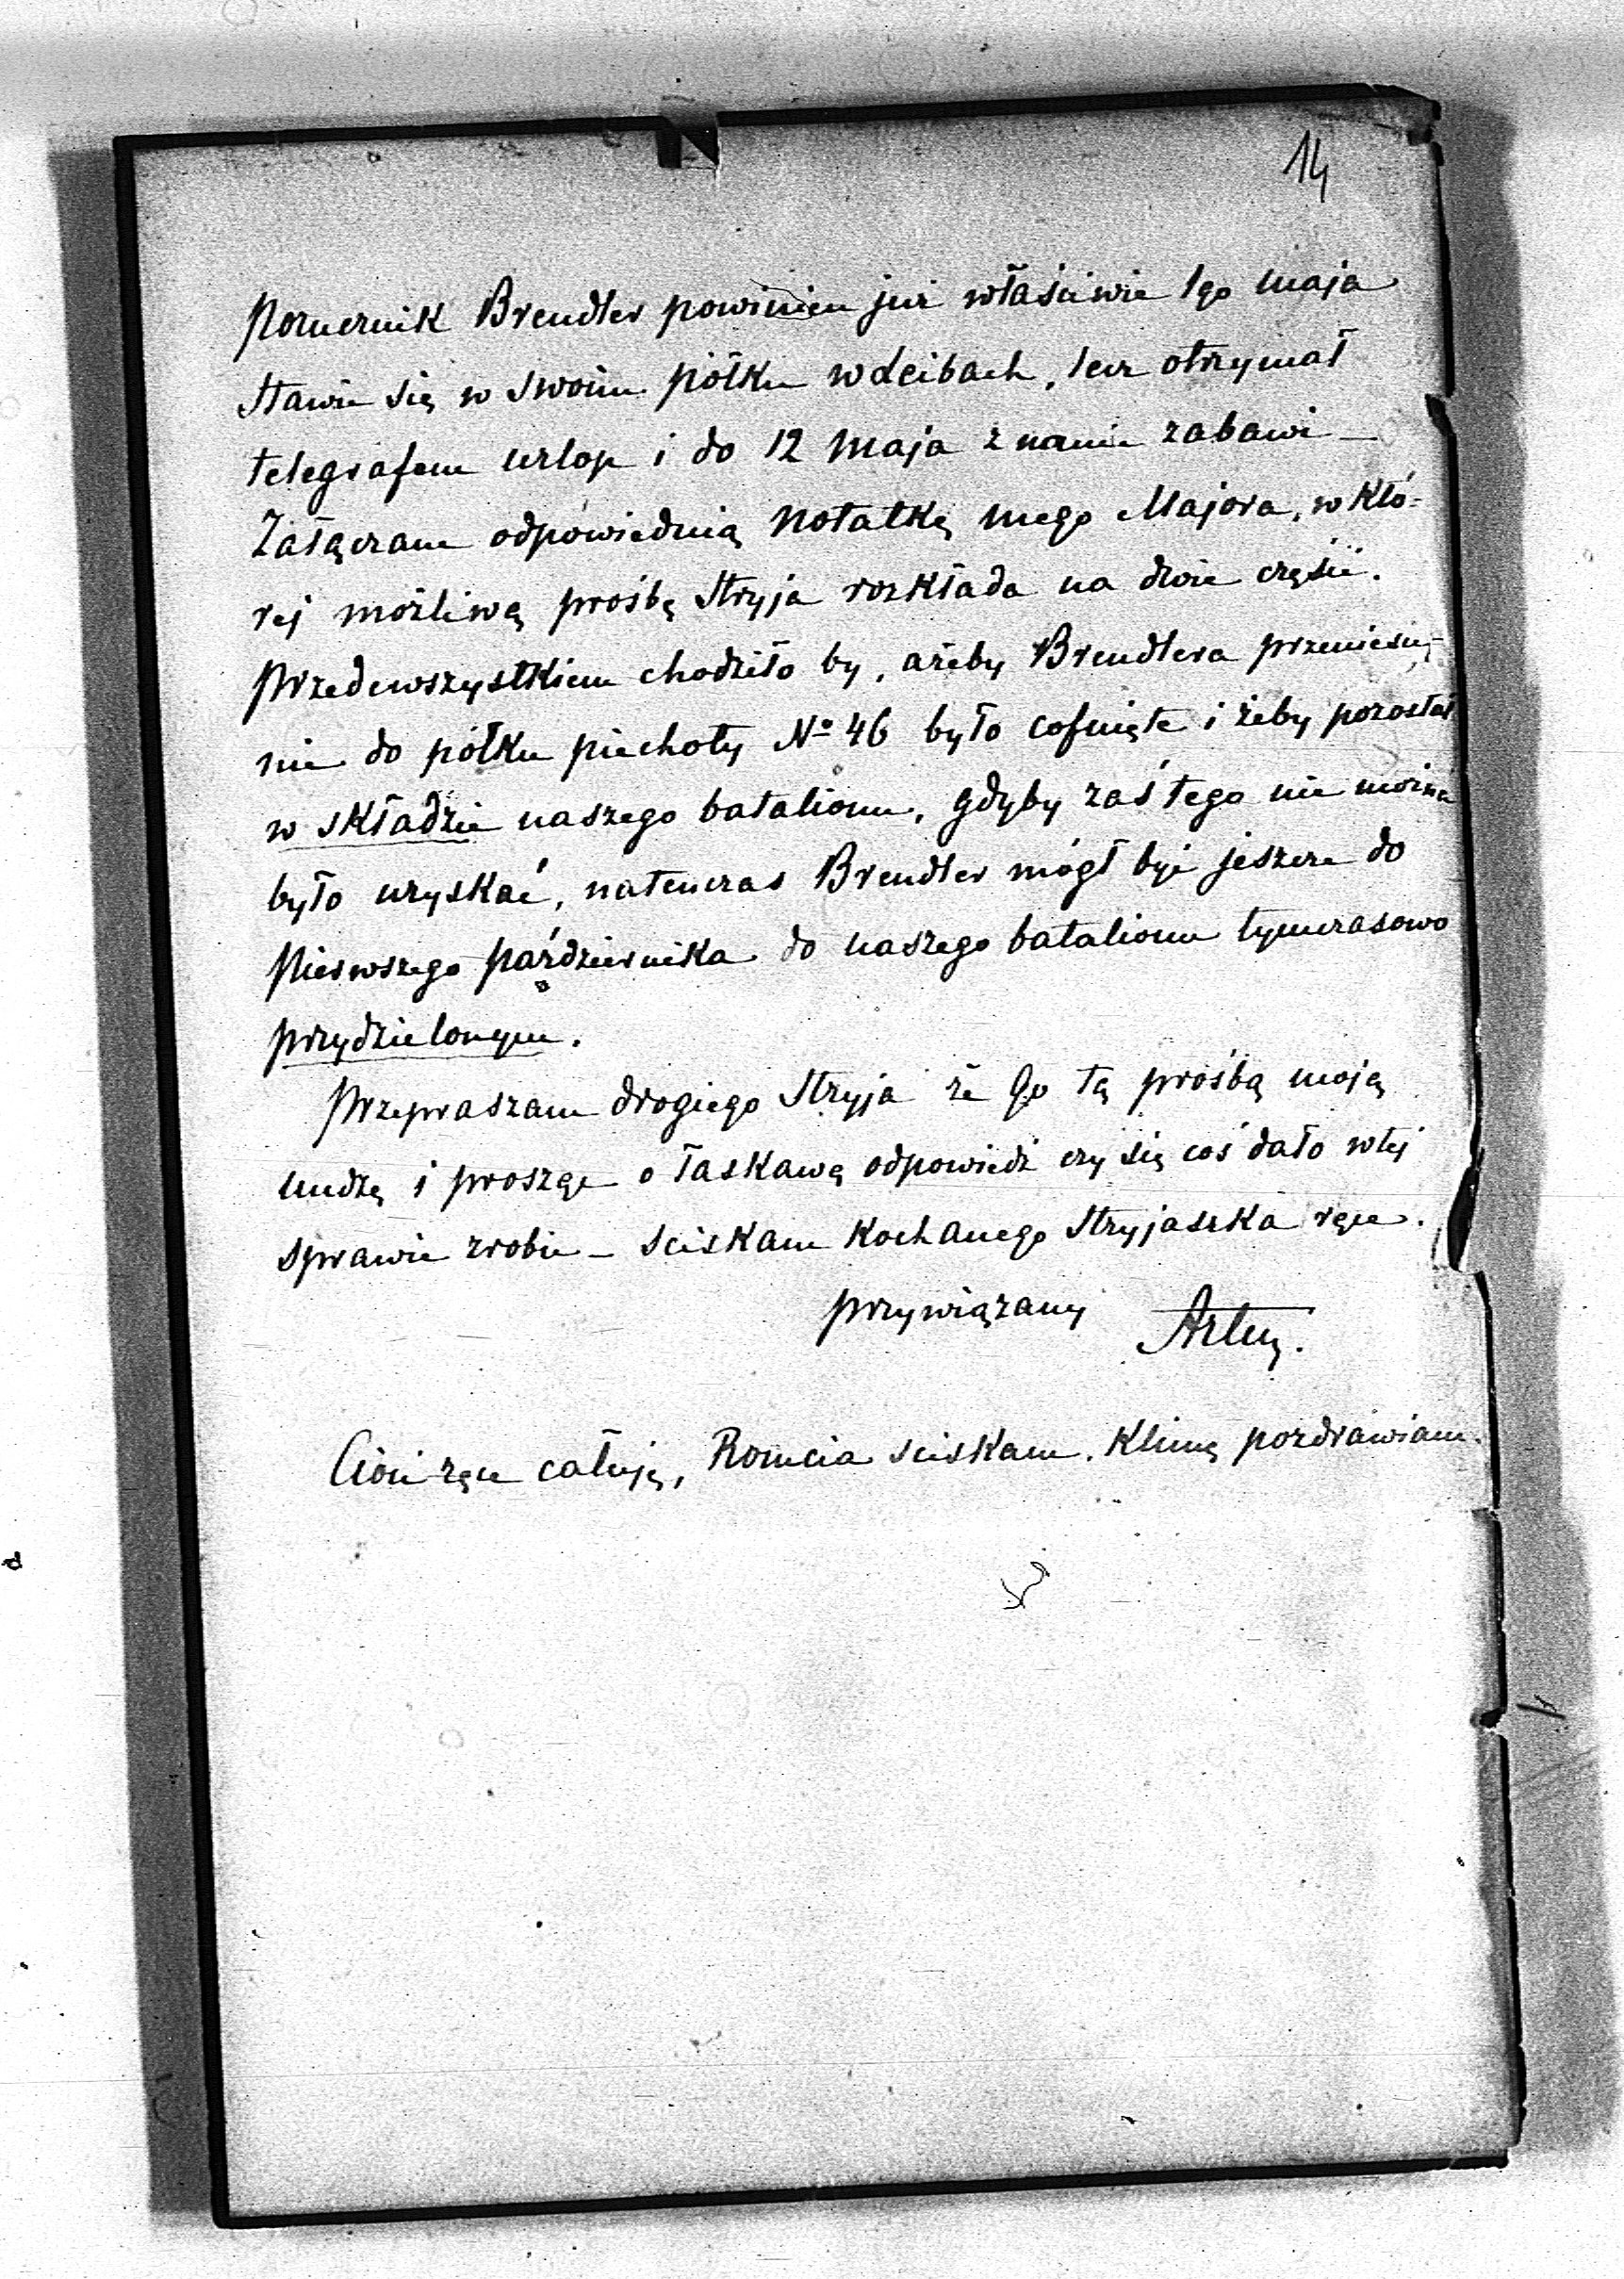 14
Porucznik Brendler powinien już właściwie 1go maja
stawić się w swoim półku w Leibach, lecz otrzymał
telegrafem urlop i do 12 maja z nami zabawi _
Załączam odpowiednią notatkę mego Majora, w któ-
rej możliwą prośbę Stryja rozkłada na dwie części.
Przedewszystkiem chodziło by, ażeby Brendlera przeniesie-
nie do półku piechoty No 46 było cofnięte i żeby pozostał
w składzie naszego batalionu, gdyby zaś tego nie można
było uzyskać, natenczas Brendler mógł być jeszcze do
Pierwszego października do naszego batalionu tymczasowo
przydzielonym.
Przepraszam drogiego Stryja że Go tą prośbą moją
nudzę i proszę o łaskawą odpowiedź czy się coś dało w tej
sprawie zrobić _ sciskam kochanego Stryjaszka ręce.
przywiązany Artur.
Cioci ręce całuję, Romcia sciskam. Klimę pozdrawiam.